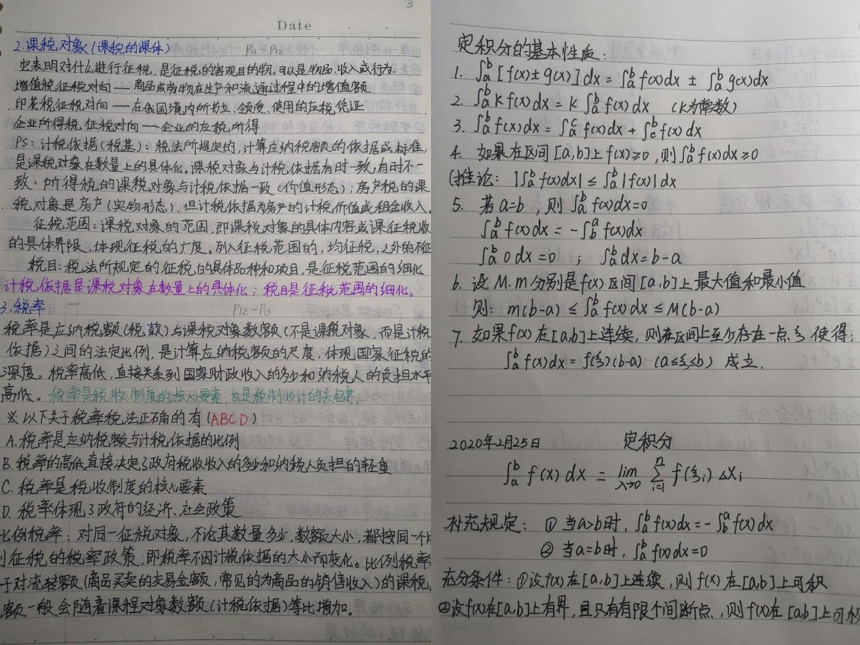 3
Date
2.课税对象(课税的课体) P11-P12
它表明对什么进行征税,是征税的客观目的物。可以是物品、收入或行为
增值税征税对向——商品或劳物在生产和流通过程中的增值额
印花税征税对向——在我国境内所书立、领受、使用的应税凭证
企业所得税征税对向——企业的应税所得
PS:计税依据(税基):税法所规定的,计算应纳税额的依据或标准,
是课税对象在数量上的具体化。课税对象与计税依据有时一致,有时不一
致。所得税的课税对象与计税依据一致(价值形态);房产税的课
税对象是房产(实物形态),但计税依据为房产的计税价值或租金收入。
征税范围:课税对象的范围,即课税对象的具体内容或课征税收
的具体界限,体现征税的广度。列入征税范围的,均征税,之外的不征
税目:税法所规定的征税的具体品种和项目,是征税范围的细化
计税依据是课税对象在数量上的具体化;税目是征税范围的细化。
3.税率 P12-P13
税率是应纳税额(税款)与课税对象数额(不是课税对象,而是计税
依据)之间的法定比例,是计算应纳税额的尺度,体现国家征税的
深度。税率高低,直接关系到国家财政收入的多少和纳税人的负担水平
高低。税率是税收制度的核心要素,也是税制设计的关键。
※以下关于税率税法正确的有(ABCD)
A.税率是应纳税额与计税依据的比例
B.税率的高低直接决定了政府税收收入的多少和纳税人负担的轻重
C.税率是税收制度的核心要素
D.税率体现了政府的经济、社会政策
比例税率:对同一征税对象,不论其数量多少,数额大小,都按同一个
征税的税率政策,即税率不因计税依据的大小而变化。比例税率
于对流转额(商品买卖的交易金额,常见的为商品的销售收入)的课税,
额一般会随着课程对象数额(计税依据)等比增加。
定积分的基本性质:
1. ∫ₐᵇ[f(x)±g(x)]dx=∫ₐᵇf(x)dx ± ∫ₐᵇg(x)dx
2. ∫ₐᵇkf(x)dx=k∫ₐᵇf(x)dx (k为常数)
3. ∫ₐᵇf(x)dx=∫ₐᶜf(x)dx+∫꜀ᵇf(x)dx
4. 如果在区间[a,b]上f(x)≥0,则∫ₐᵇf(x)dx≥0
(推论:|∫ₐᵇf(x)dx|≤∫ₐᵇ|f(x)|dx
5. 若a=b,则∫ₐᵇf(x)dx=0
∫ₐᵇf(x)dx=-∫_b^a f(x)dx
∫ₐᵇ0dx=0;∫ₐᵇdx=b-a
6. 设M.m分别是f(x)区间[a.b]上最大值和最小值
则:m(b-a)≤∫ₐᵇf(x)dx≤M(b-a)
7. 如果f(x)在[a,b]上连续,则在区间上至少存在一点ξ,使得:
∫ₐᵇf(x)dx=f(ξ)(b-a) (a≤ξ≤b) 成立.
2020年2月25日 定积分
∫ₐᵇ f(x) dx = lim_{λ→0} Σ_{i=1}^n f(ξi)ΔXi
补充规定:①当a>b时,∫ₐᵇf(x)dx=-∫_b^a f(x)dx
②当a=b时,∫ₐᵇf(x)dx=0
充分条件:①设f(x)在[a,b]上连续,则f(x)在[a,b]上可积
②设f(x)在[a,b]上有界,且只有有限个间断点,则f(x)在[a,b]上可积